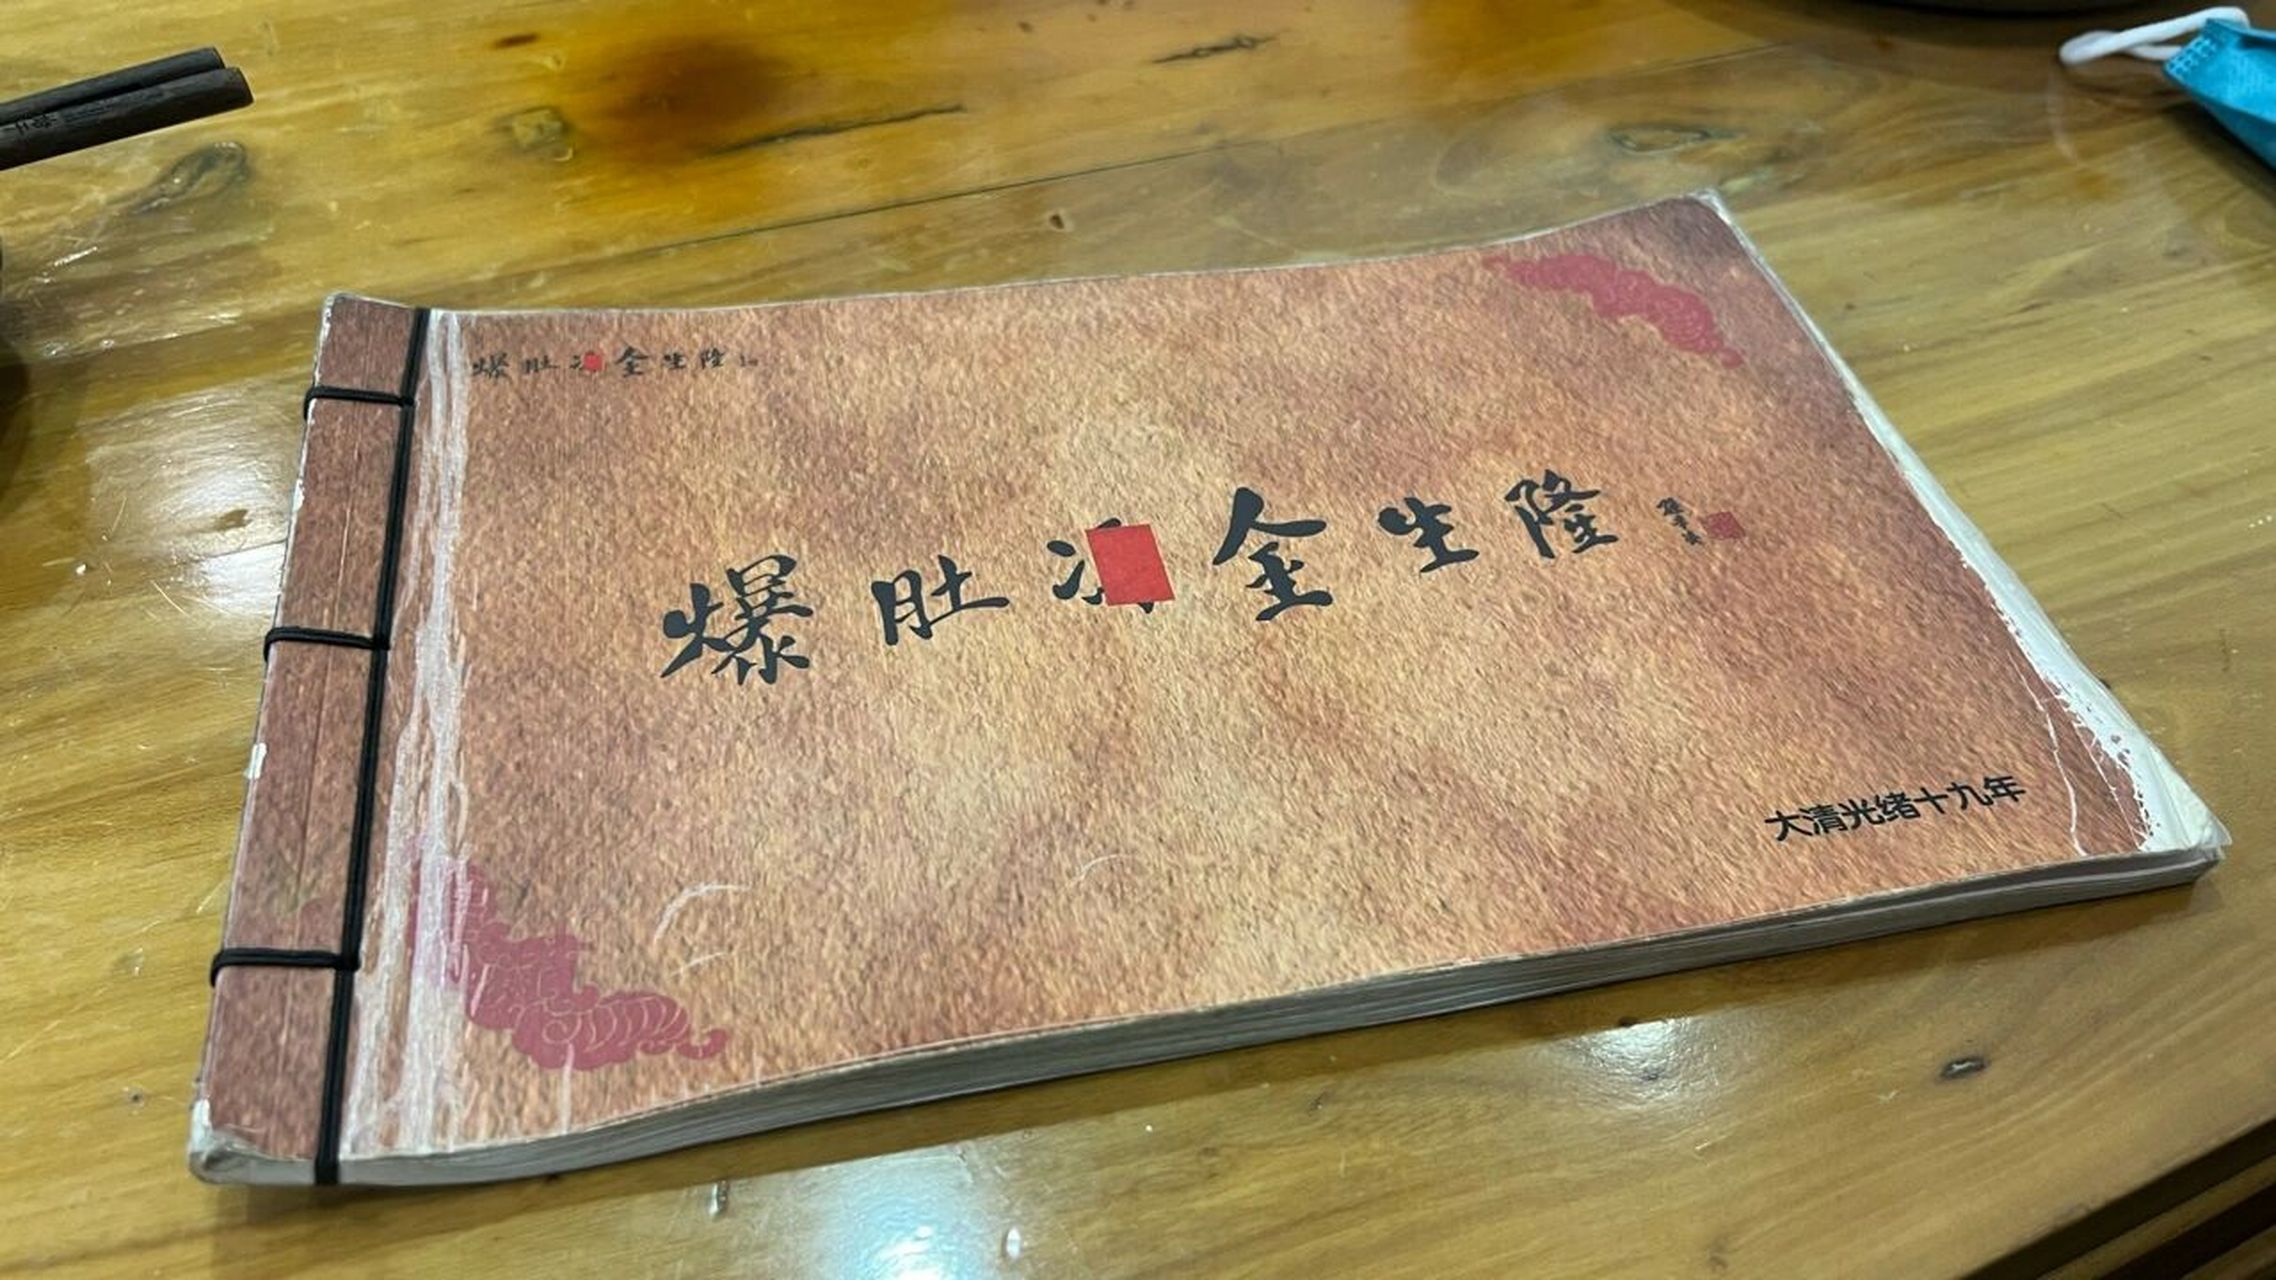 爆肚 金生隆
爆肚 金生隆
大清光绪十九年